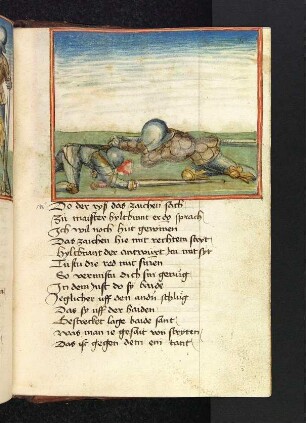 Do der ryß das zaichen sach
Zu maister hyltbrant er do sprach
Ich wil noch hut gewinen
Das zaichen hie mit rechtem stryt
Hyltbrant der antwurt im mit nyt
Tustu die red mit sinen
So vermistu dich sin genug
In dem lust do sy baide
Jeglicher uff den andn schlug
Das sy uff der haiden
Gestrecket lage baide sant
Was man ie gesait von stryten
Das ist gegem dem ein tant